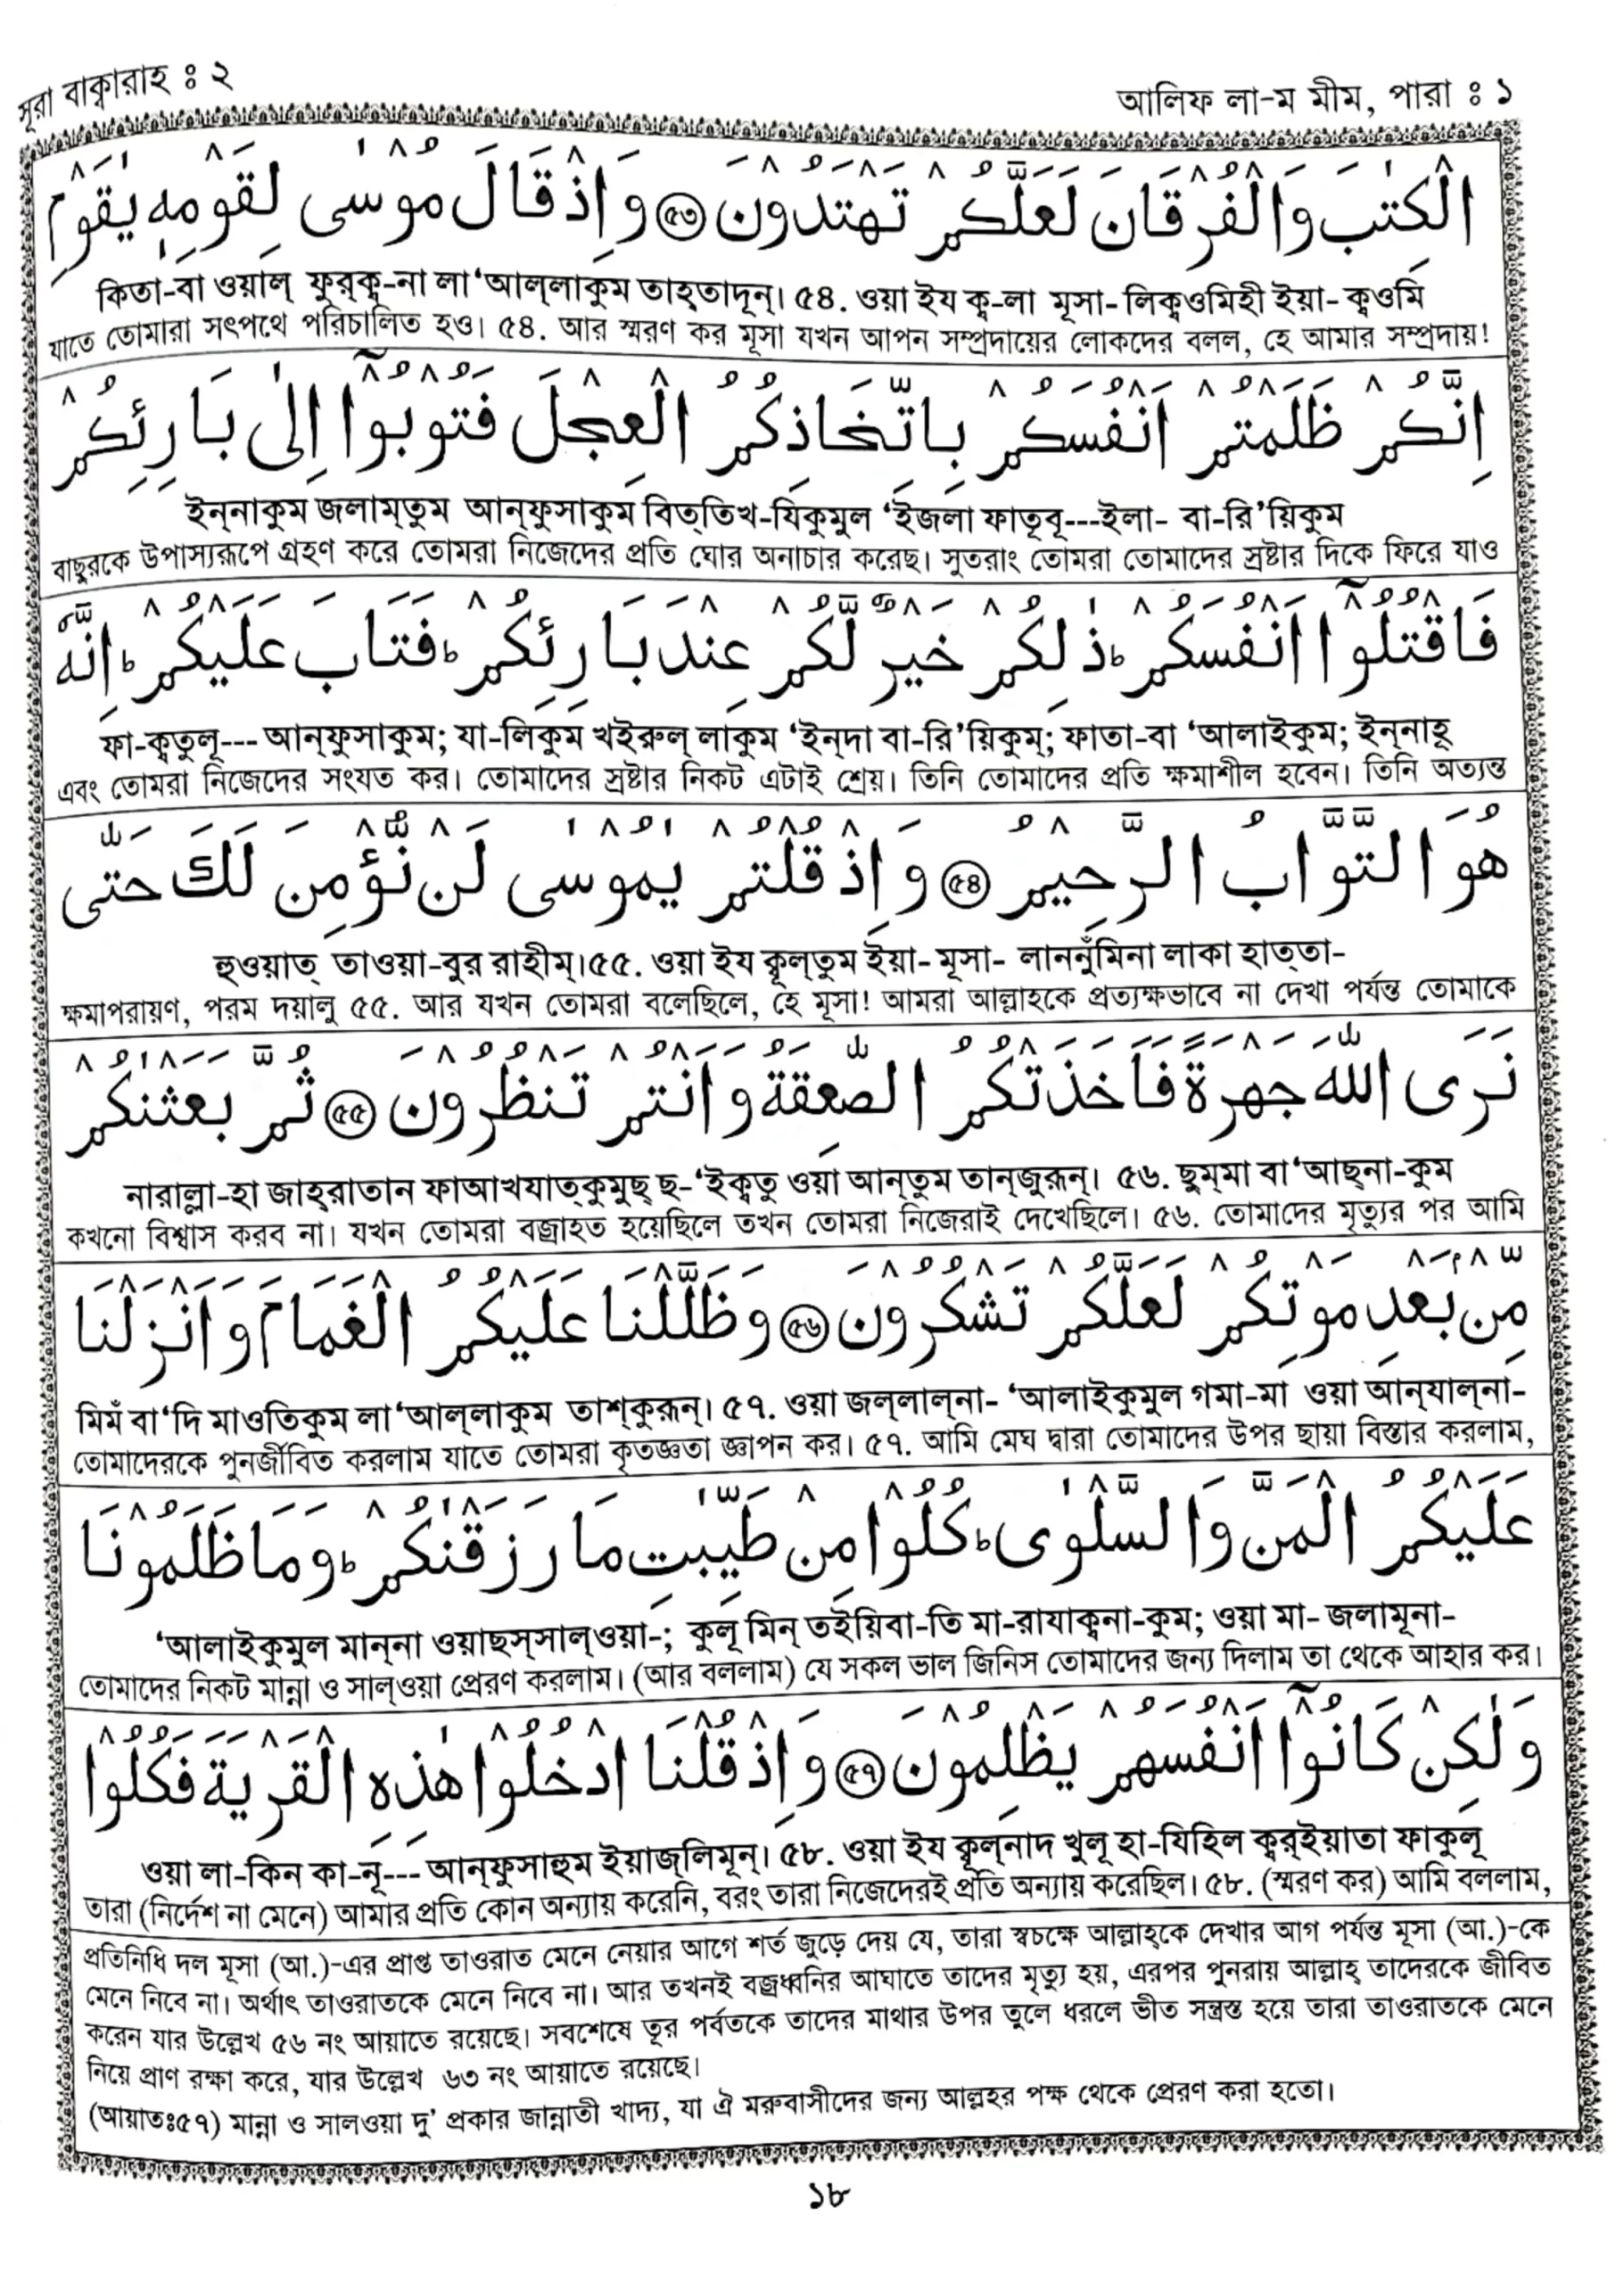 সূরা বাক্বারাহ ঃ ২
আলিফ লা-ম মীম, পারা ঃ ১
الْكِتٰبَ وَالْفُرْقَانَ لَعَلَّكُمْ تَهْتَدُوْنَ ﴿৫৩﴾ وَاِذْ قَالَ مُوْسٰى لِقَوْمِهٖ يٰقَوْمِ
কিতা-বা ওয়াল্ ফুর্‌ক্ব-না লা‘আল্‌লাকুম তাহ্‌তাদূন্। ৫৪. ওয়া ইয ক্ব-লা মূসা- লিক্বওমিহী ইয়া- ক্বওমি
যাতে তোমারা সৎপথে পরিচালিত হও। ৫৪. আর স্মরণ কর মূসা যখন আপন সম্প্রদায়ের লোকদের বলল, হে আমার সম্প্রদায়!
اِنَّكُمْ ظَلَمْتُمْ اَنْفُسَكُمْ بِاتِّخَاذِكُمُ الْعِجْلَ فَتُوْبُوْٓا اِلٰى بَارِئِكُمْ
ইন্‌নাকুম জলাম্‌তুম আন্‌ফুসাকুম বিত্‌তিখ-যিকুমুল ‘ইজলা ফাতূবূ---ইলা- বা-রি’য়িকুম
বাছুরকে উপাস্যরূপে গ্রহণ করে তোমরা নিজেদের প্রতি ঘোর অনাচার করেছ। সুতরাং তোমরা তোমাদের স্রষ্টার দিকে ফিরে যাও
فَاقْتُلُوْٓا اَنْفُسَكُمْ ؕ ذٰلِكُمْ خَيْرٌ لَّكُمْ عِنْدَ بَارِئِكُمْ ؕ فَتَابَ عَلَيْكُمْ ؕ اِنَّهٗ
ফা-ক্বতুলূ--- আন্‌ফুসাকুম; যা-লিকুম খইরুল্ লাকুম ‘ইন্‌দা বা-রি’য়িকুম্; ফাতা-বা ‘আলাইকুম; ইন্‌নাহূ
এবং তোমরা নিজেদের সংযত কর। তোমাদের স্রষ্টার নিকট এটাই শ্রেয়। তিনি তোমাদের প্রতি ক্ষমাশীল হবেন। তিনি অত্যন্ত
هُوَ التَّوَّابُ الرَّحِيْمُ ﴿৫৪﴾ وَاِذْ قُلْتُمْ يٰمُوْسٰى لَنْ نُّؤْمِنَ لَكَ حَتّٰى
হুওয়াত্ তাওয়া-বুর রাহীম্।৫৫. ওয়া ইয ক্বূল্‌তুম ইয়া- মূসা- লাননুঁমিনা লাকা হাত্‌তা-
ক্ষমাপরায়ণ, পরম দয়ালু ৫৫. আর যখন তোমরা বলেছিলে, হে মূসা! আমরা আল্লাহকে প্রত্যক্ষভাবে না দেখা পর্যন্ত তোমাকে
نَرَى اللّٰهَ جَهْرَةً فَاَخَذَتْكُمُ الصّٰعِقَةُ وَاَنْتُمْ تَنْظُرُوْنَ ﴿৫৫﴾ ثُمَّ بَعَثْنٰكُمْ
নারাল্লা-হা জাহ্‌রাতান ফাআখযাত্‌কুমুছ্ ছ-‘ইক্বতু ওয়া আন্‌তুম তান্‌জুরূন্। ৫৬. ছুম্‌মা বা‘আছ্‌না-কুম
কখনো বিশ্বাস করব না। যখন তোমরা বজ্রাহত হয়েছিলে তখন তোমরা নিজেরাই দেখেছিলে। ৫৬. তোমাদের মৃত্যুর পর আমি
مِّنْ بَعْدِ مَوْتِكُمْ لَعَلَّكُمْ تَشْكُرُوْنَ ﴿৫৬﴾ وَظَلَّلْنَا عَلَيْكُمُ الْغَمَامَ وَاَنْزَلْنَا
মিমঁ বা‘দি মাওতিকুম লা‘আল্‌লাকুম তাশ্‌কুরূন্। ৫৭. ওয়া জল্‌লাল্‌না- ‘আলাইকুমুল গমা-মা ওয়া আন্‌যাল্‌না-
তোমাদেরকে পুনর্জীবিত করলাম যাতে তোমরা কৃতজ্ঞতা জ্ঞাপন কর। ৫৭. আমি মেঘ দ্বারা তোমাদের উপর ছায়া বিস্তার করলাম,
عَلَيْكُمُ الْمَنَّ وَالسَّلْوٰى ؕ كُلُوْا مِنْ طَيِّبٰتِ مَا رَزَقْنٰكُمْ ؕ وَمَا ظَلَمُوْنَا
‘আলাইকুমুল মান্‌না ওয়াছস্‌সাল্‌ওয়া-; কুলূ মিন্ তইয়িবা-তি মা-রাযাক্বনা-কুম; ওয়া মা- জলামূনা-
তোমাদের নিকট মান্না ও সাল্‌ওয়া প্রেরণ করলাম। (আর বললাম) যে সকল ভাল জিনিস তোমাদের জন্য দিলাম তা থেকে আহার কর।
وَلٰكِنْ كَانُوْٓا اَنْفُسَهُمْ يَظْلِمُوْنَ ﴿৫৭﴾ وَاِذْ قُلْنَا ادْخُلُوْا هٰذِهِ الْقَرْيَةَ فَكُلُوْا
ওয়া লা-কিন কা-নূ--- আন্‌ফুসাহুম ইয়াজ্‌লিমূন্। ৫৮. ওয়া ইয ক্বূল্‌নাদ খুলূ হা-যিহিল ক্বর্‌ইয়াতা ফাকুলূ
তারা (নির্দেশ না মেনে) আমার প্রতি কোন অন্যায় করেনি, বরং তারা নিজেদেরই প্রতি অন্যায় করেছিল। ৫৮. (স্মরণ কর) আমি বললাম,
প্রতিনিধি দল মূসা (আ.)-এর প্রাপ্ত তাওরাত মেনে নেয়ার আগে শর্ত জুড়ে দেয় যে, তারা স্বচক্ষে আল্লাহ্‌কে দেখার আগ পর্যন্ত মূসা (আ.)-কে
মেনে নিবে না। অর্থাৎ তাওরাতকে মেনে নিবে না। আর তখনই বজ্রধ্বনির আঘাতে তাদের মৃত্যু হয়, এরপর পুনরায় আল্লাহ্ তাদেরকে জীবিত
করেন যার উল্লেখ ৫৬ নং আয়াতে রয়েছে। সবশেষে তূর পর্বতকে তাদের মাথার উপর তুলে ধরলে ভীত সন্ত্রস্ত হয়ে তারা তাওরাতকে মেনে
নিয়ে প্রাণ রক্ষা করে, যার উল্লেখ ৬৩ নং আয়াতে রয়েছে।
(আয়াতঃ৫৭) মান্না ও সালওয়া দু’ প্রকার জান্নাতী খাদ্য, যা ঐ মরুবাসীদের জন্য আল্লহর পক্ষ থেকে প্রেরণ করা হতো।
১৮